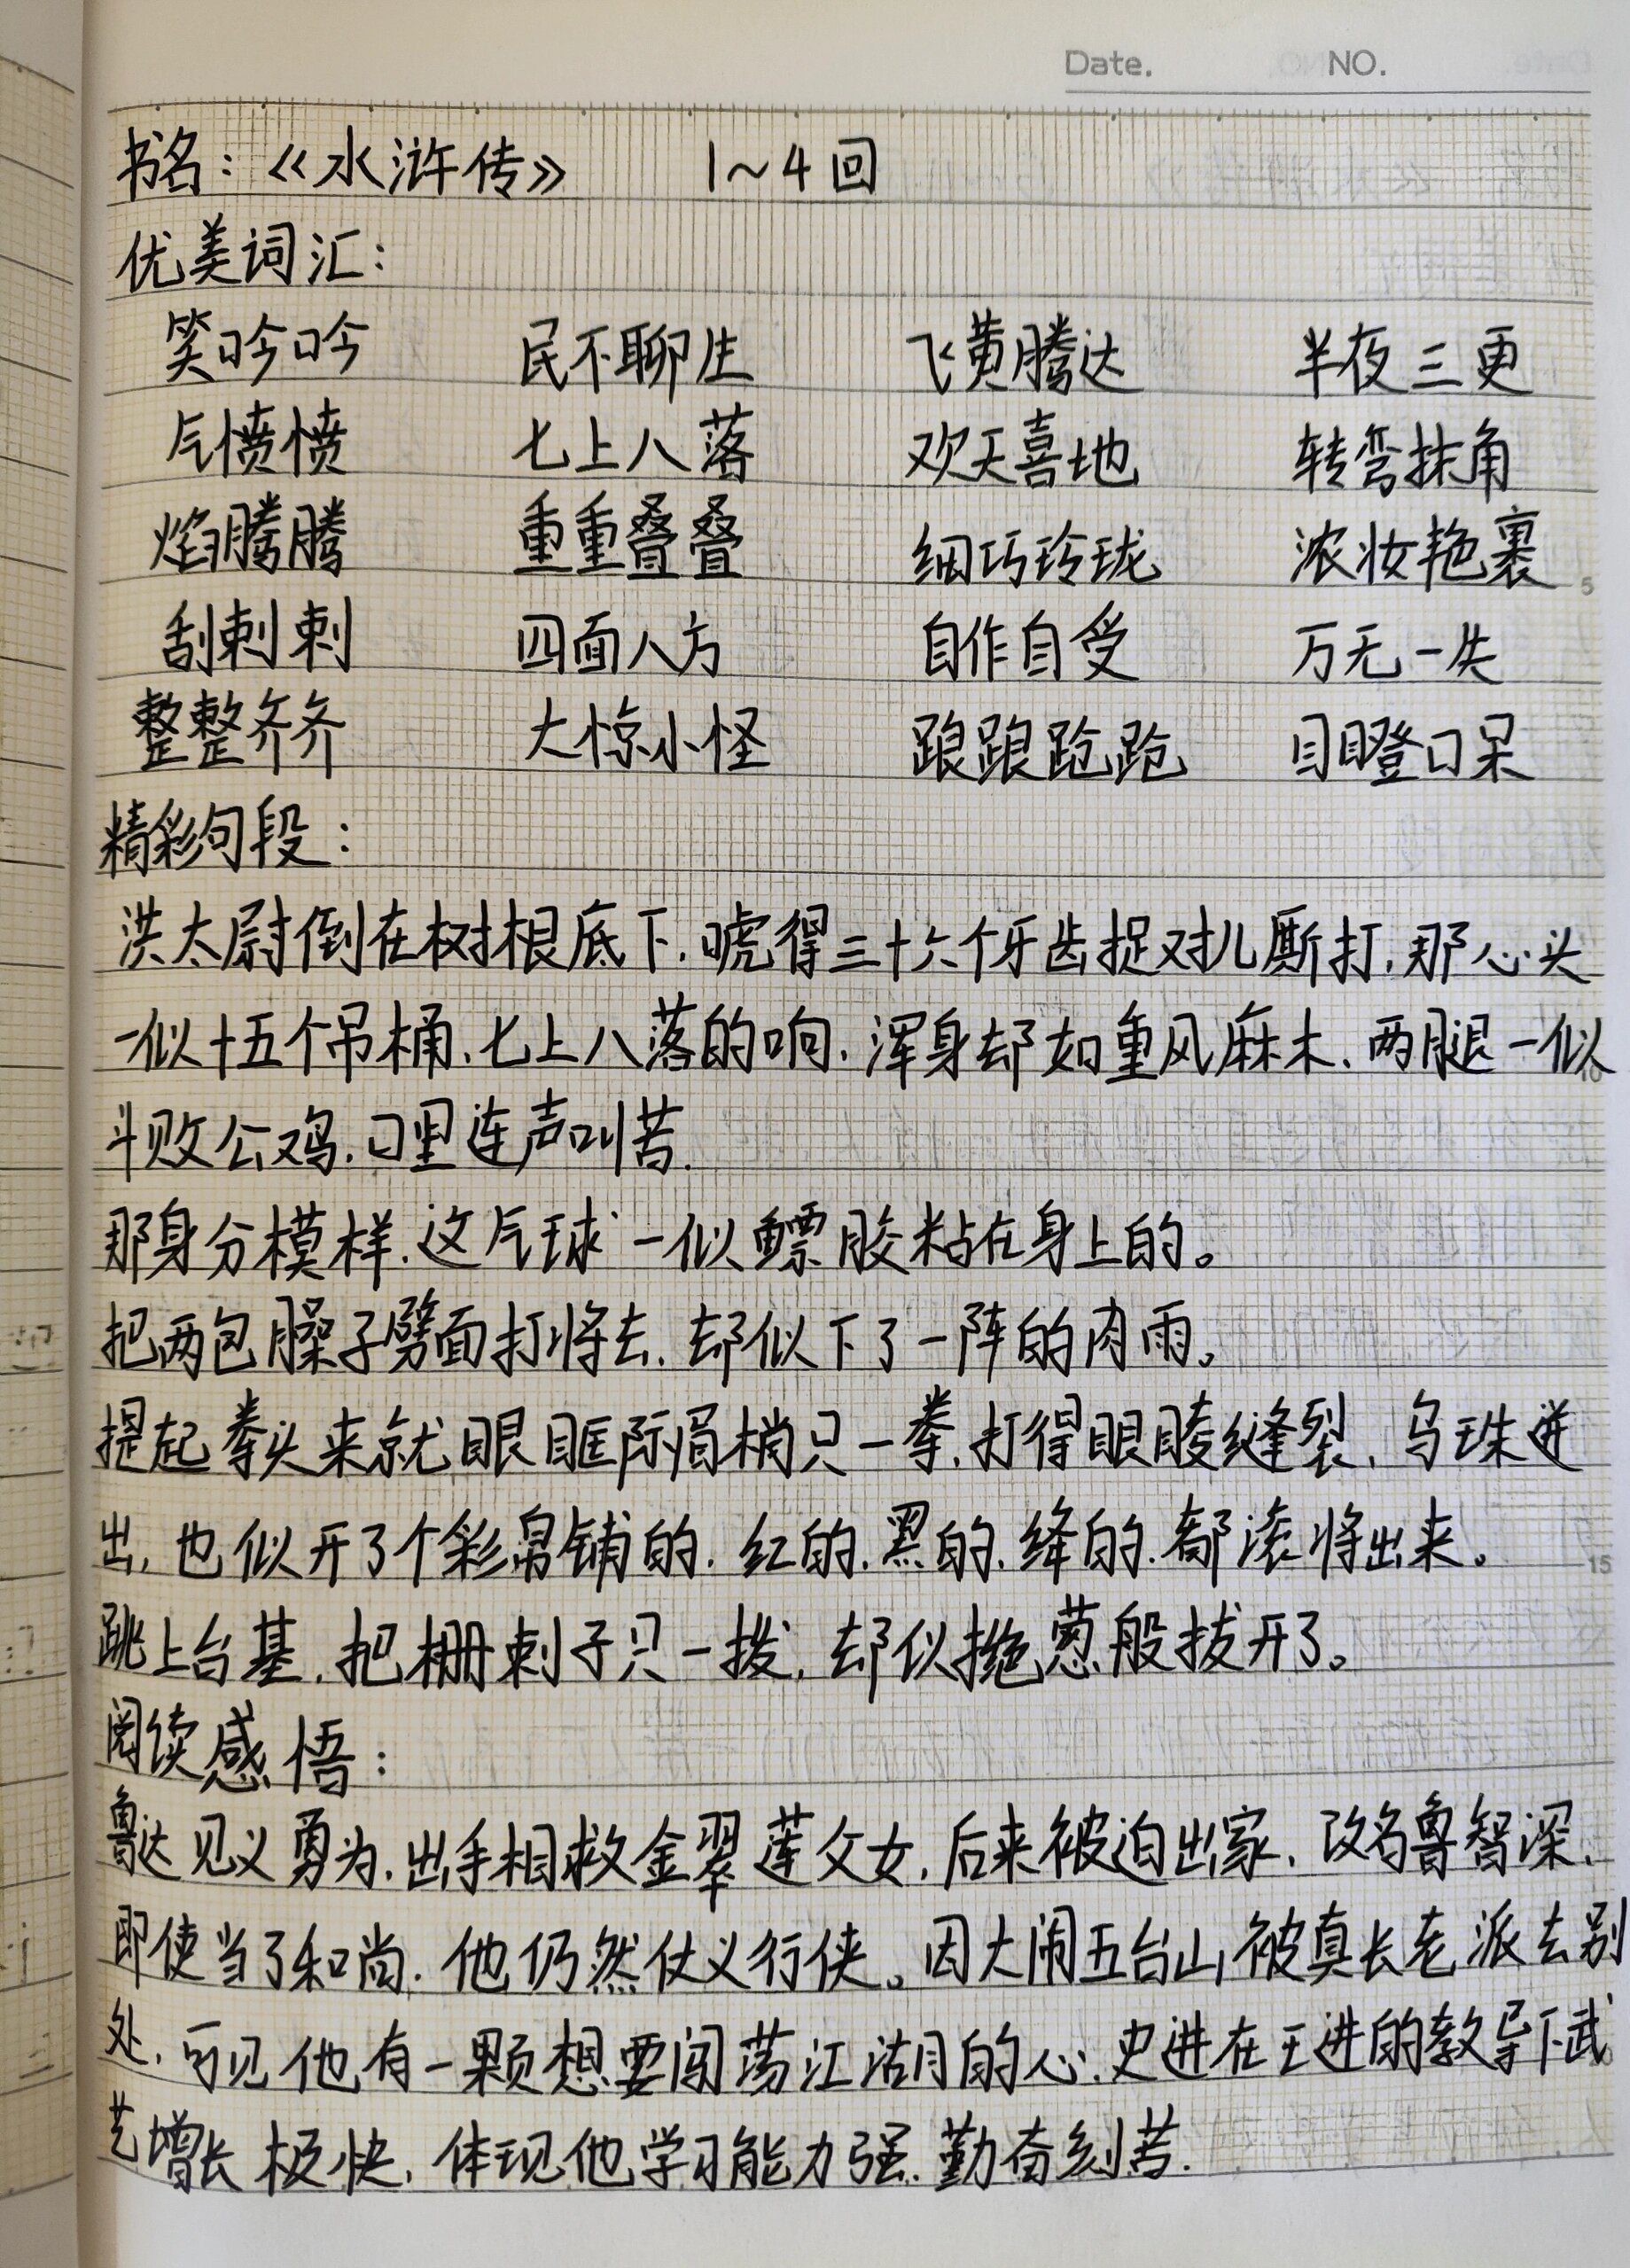 Date. NO.
书名：《水浒传》 1~4回
优美词汇：
笑吟吟 民不聊生 飞黄腾达 半夜三更
气愤愤 七上八落 欢天喜地 转弯抹角
焰腾腾 重重叠叠 细巧玲珑 浓妆艳裹
刮剌剌 四面八方 自作自受 万无一失
整整齐齐 大惊小怪 踉踉跄跄 目瞪口呆
精彩句段：
洪太尉倒在树根底下，唬得三十六个牙齿捉对儿厮打，那心头
一似十五个吊桶，七上八落的响，浑身却如重风麻木，两腿一似
斗败公鸡，口里连声叫苦.
那身分模样，这气球一似鳔胶粘在身上的。
把两包臊子劈面打将去，却似下了一阵的肉雨。
提起拳头来就眼眶际眉梢只一拳，打得眼睖缝裂，乌珠迸
出，也似开了个彩帛铺的，红的，黑的，绛的，都滚将出来。
跳上台基，把栅剌子只一拔，却似撧葱般拔开了。
阅读感悟：
鲁达见义勇为，出手相救金翠莲父女，后来被迫出家，改名鲁智深，
即使当了和尚，他仍然仗义行侠。因大闹五台山，被真长老派去别
处，可见他有一颗想要闯荡江湖的心，史进在王进的教导下武
艺增长极快，体现他学习能力强，勤奋刻苦.
5
10
15